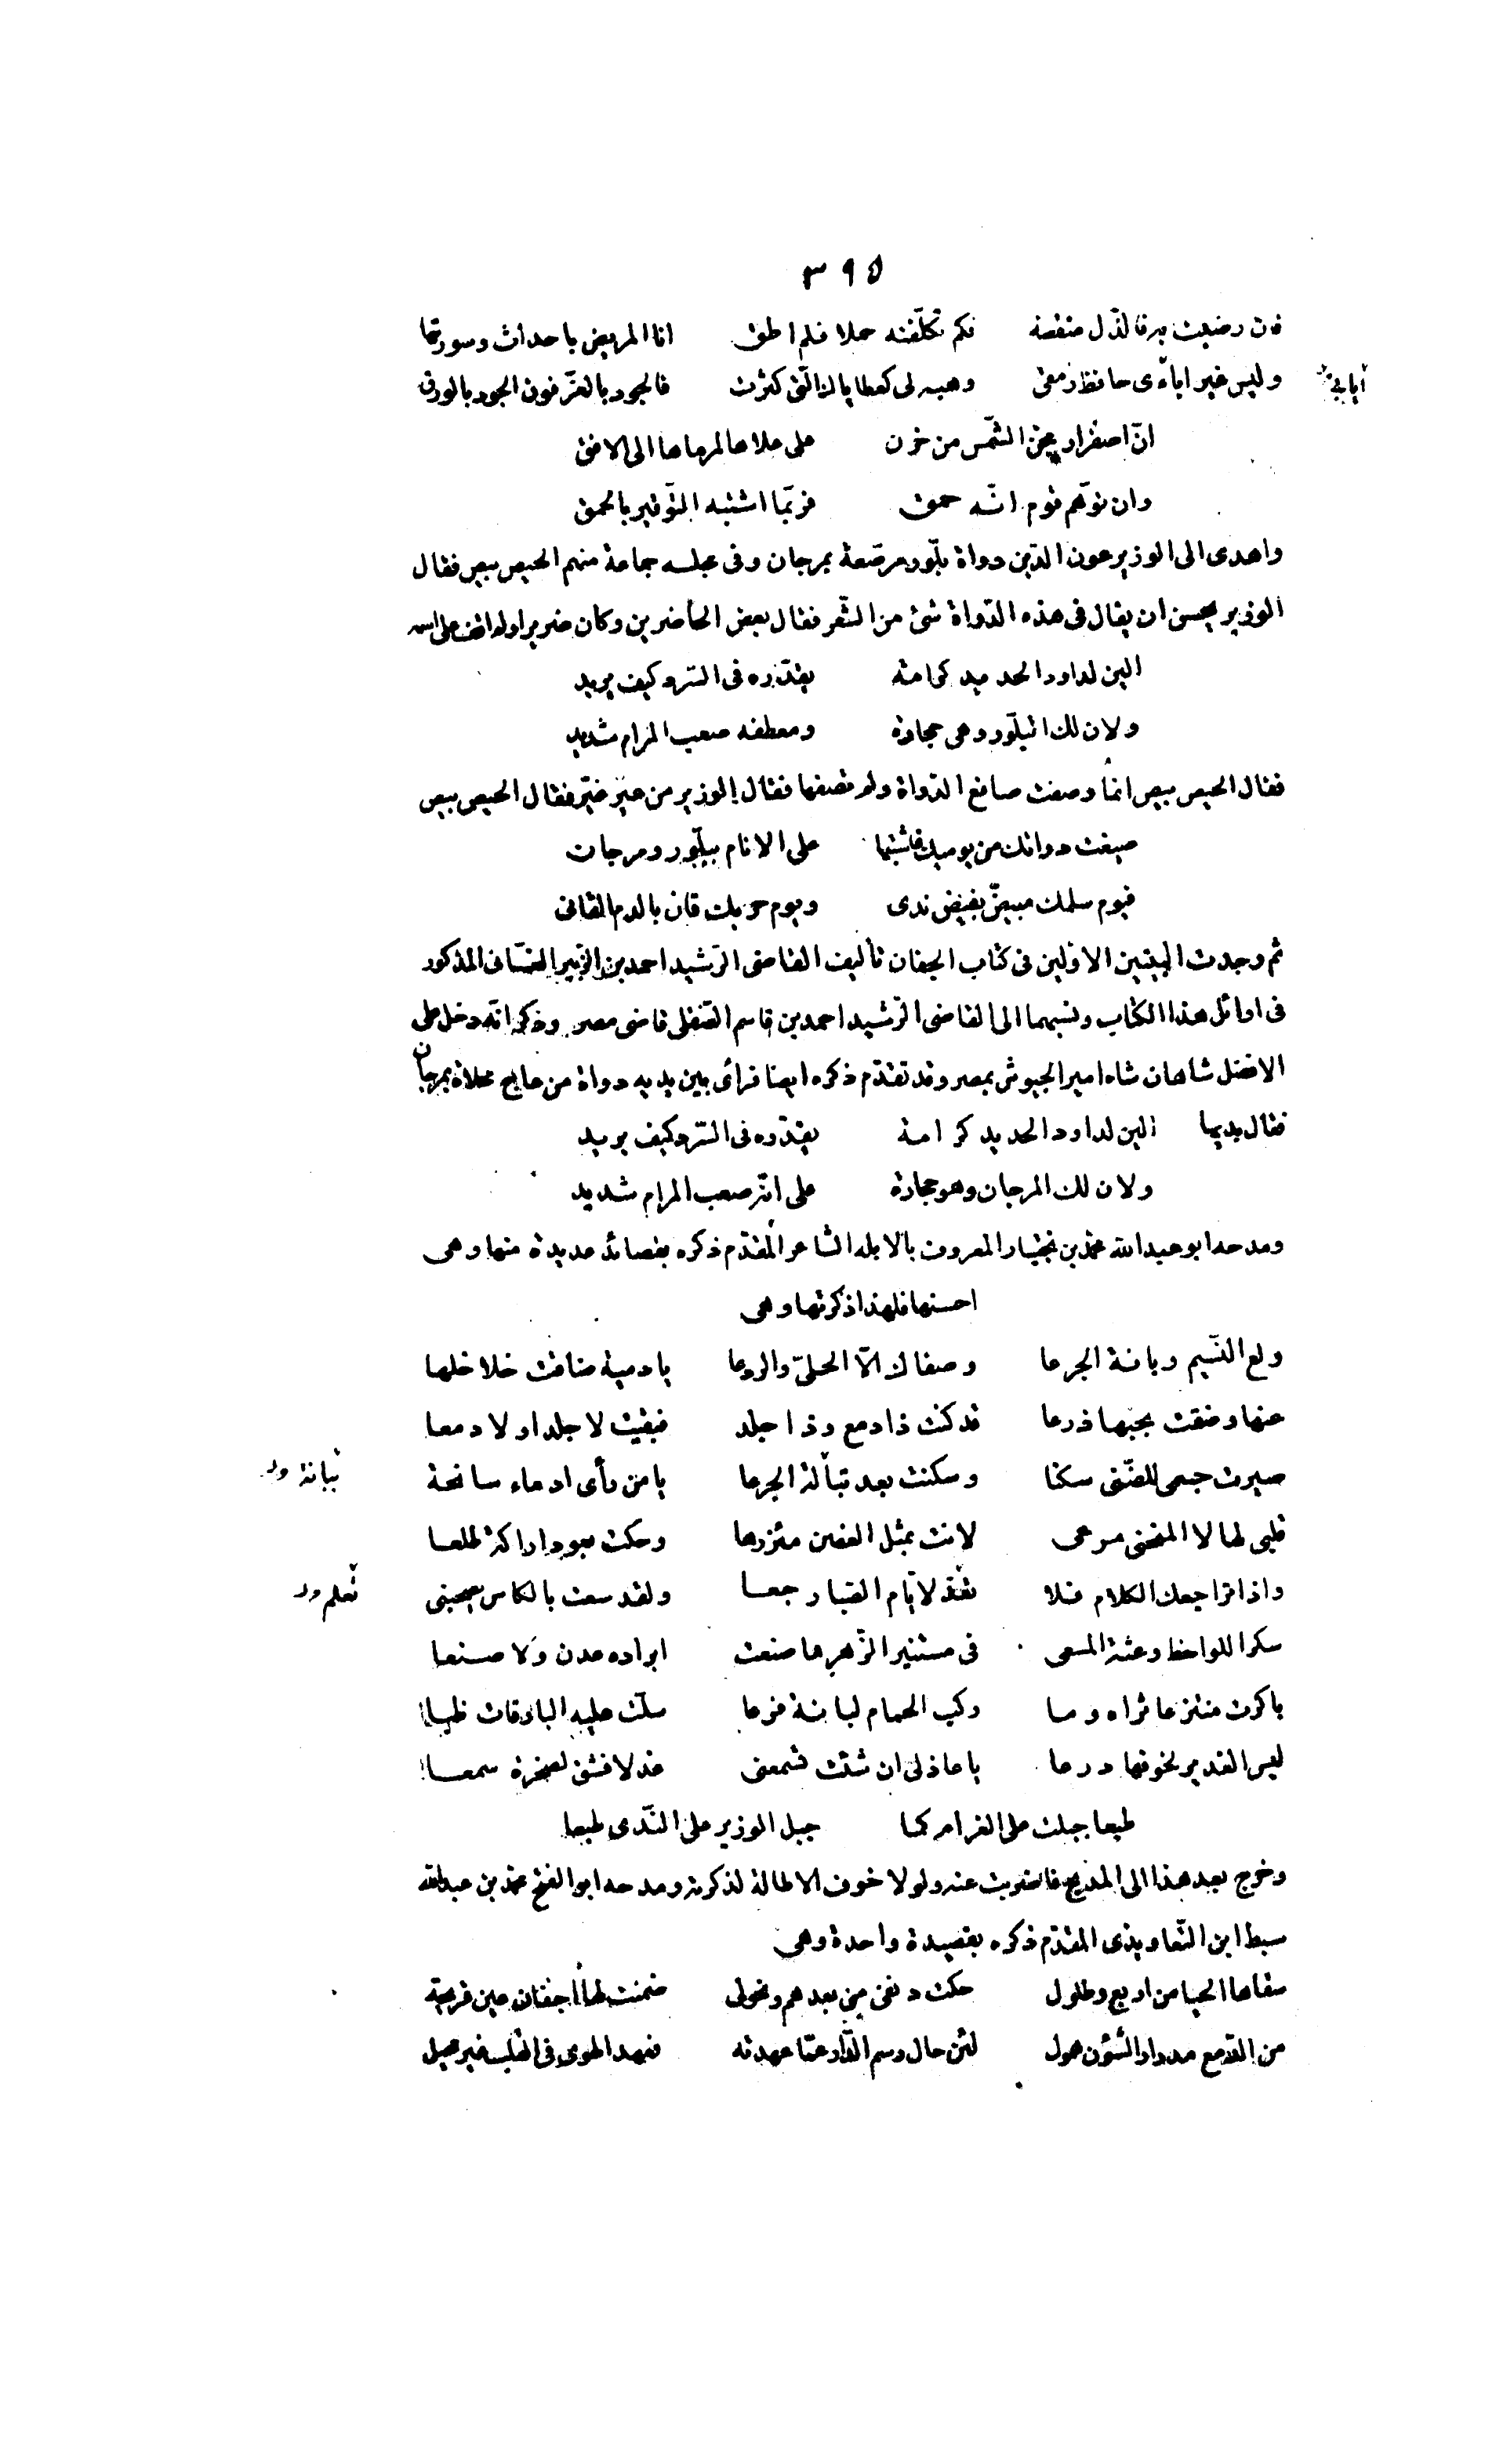 ٣٩٥
فان رضيت برفا لذّل منقصة فكم تكلّفته حملا فلم اطق انا المريض باحداث وسورتها
وليس غير اباءى حافظ رمقى وهبه لى كعطاياك التى كثرت فالجود بالعزّ فوق الجود بالورق
انّ اصفرار مجن الشّمس من حزن على علاها لمرماها الى الافق
وان توّهم قوم انّه حمق فربّما اشتبه التوّقير بالحمق
واهدى الى الوزير عون الدّين دواة بلّور مرصّعة بمرجان وفى مجلسه جماعة منهم الحيص بيص فقال
الوزير يحسن ان يقال فى هذه الدّواة شئ من الشّعر فقال بعض الحاضرين وكان ضريرا ولم اقف على اسمه
الين لداود الحديد كرامة يقدّره فى السّرد كيف يريد
ولان لك البلّور وهى حجارة ومعطفه صعب المرام شديد
فقال الحيص بيص انّما وصفت صانع الدّواة ولم تصفها فقال الوزير من عيّر غيّر فقال الحيص بيص
صيغت دواتك من يوميك فاشتبها على الانام ببلّور ومرجان
فيوم سلمك مبيضّ بفيض ندى ويوم حربك قان بالدم القانى
ثم وجدت البيتين الاولين فى كتاب الجفان تأليف القاضى الرّشيد احمد بن الزبير الغسّانى المذكور
فى اوائل هذا الكتاب ونسبهما الى القاضى الرّشيد احمد بن قاسم الصّقلى قاضى مصر وذكر انّه دخل على
الافضل شاهان شاه امير الجيوش بمصر وقد تقدّم ذكره ايضا فرأى بين يديه دواة من عاج محلاة بمرجان
فقال بديها الين لداود الحديد كرامة يقدّره فى السّرد كيف يريد
ولان لك المرجان وهو حجارة على انّه صعب المرام شديد
ومدحه ابو عبد الله محمد بن بختيار المعروف بالابله الشاعر المقدّم ذكره بقصائد عديدة منها وهى
احسنها فلهذا ذكرتها وهى
ولع النّسيم وبانة الجرعا وصفاك الّا الحلىّ والردعا يا دمية ضاقت خلاخلها
عنها وضقت بحبّها ذرعا قد كنت ذا دمع وذا جلد فبقيت لا جلدا ولا دمعا
صيرت جسمى للضّنى سكنا وسكنت بعد تبالة الجرعا يا من رأى ادماء سانحة
قلبى لها لا المنحنى مرعى لاثت بمثل الغصن مئزرها وحكت بعود اراكة طلعا
واذا تراجعك الكلام فلا تغد لايّام الصّبا رجعا ولقد سعت بالكاس بصحبنى
سكرا للواحظ وعثة المسعى فى مستنير الزّهر ما صنعت ابراده عدن ولا صنعا
باكرت منتزعا ثراه وما ركب الحمام لبانة فرعا سلّت عليه البارقات ظبا
لبس الغدير لخوفها درعا يا عاذلى ان شئت تسمعنى عذلا فشق لصخرة سمعا
طبعا جبلت على الغرام كما جبل الوزير على النّدى طبعا
وخرج بعد هذا الى المديح فاضربت عنه ولولا خوف الاطالة لذكرته ومدحه ابو الفتح محمد بن عبد الله
سبط ابن التّعاويذى المقدّم ذكره بقصيدة واحدة وهى
سقاها الحيا من اربع وطلول حكت دنفى من بعدهم ونحولى ضمنت لها اجفان عين قريحة
من الدّمع مدرار الشّؤن همول لئن حال رسم الدّار عمّا عهدته فعهد الهوى فى القلب غير محيل
ابائى
تبانة
تعلم